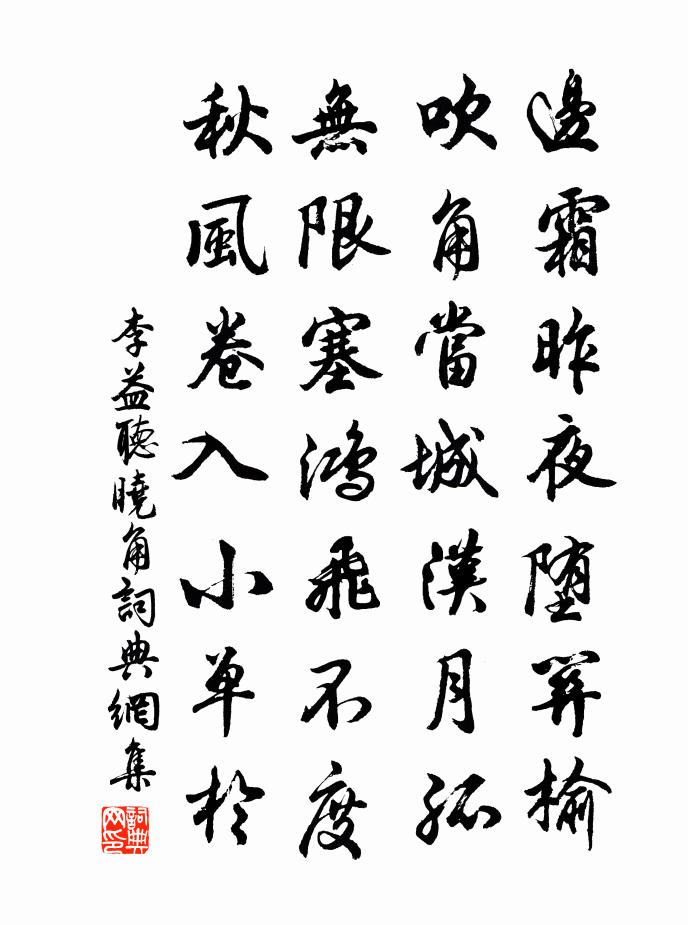 邊霜昨夜堕關榆
吹角當城漢月孤
無限塞鴻飛不度
秋風卷入小单於
李益聽曉角詞典網集
詞典
网印